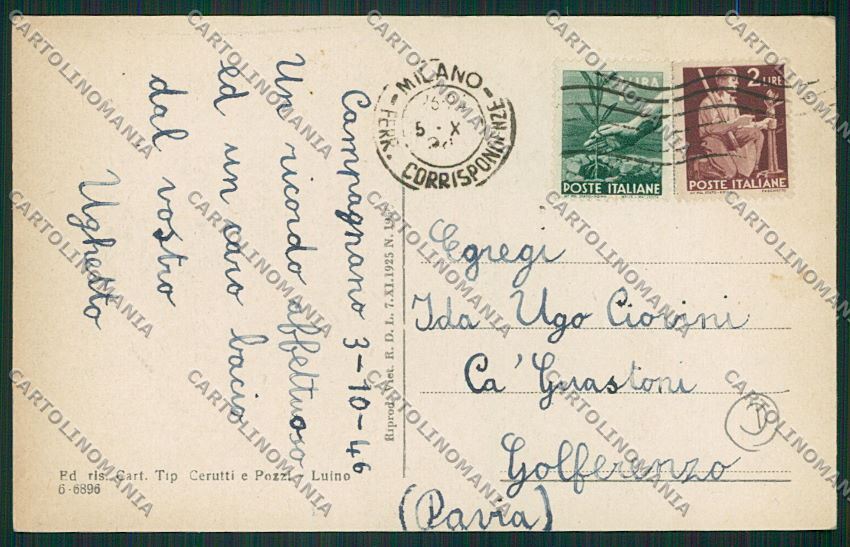 Campagnano 3-10-46
Un ricordo affettuoso
ed un caro bacio
dal vostro
Ughetto
MILANO
FERR. CORRISPONDENZE
5-X
1 LIRA
POSTE ITALIANE
2 LIRE
POSTE ITALIANE
Egregi
Ida Ugo Ciovini
Ca' Guastoni
Golferenzo
(Pavia)
Riprod. Viet. R. D. L. 7.XI.1925 N. 19
Ed ris. Cart. Tip Cerutti e Pozzi - Luino
6-6896
CARTOLINOMANIA